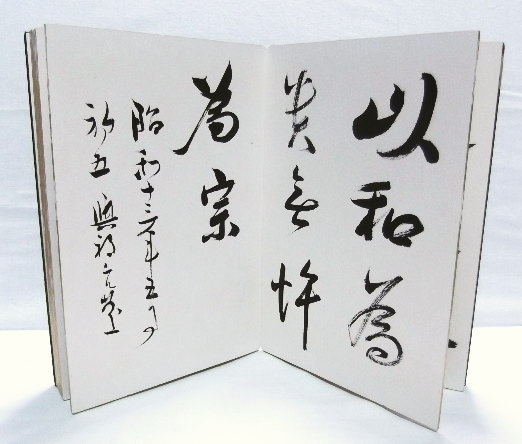 以和為
貴無忤
為宗
昭和十三年五月
初五